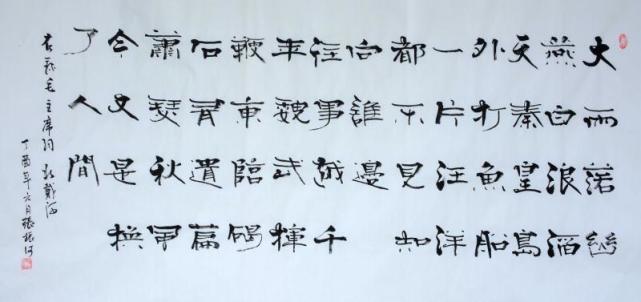 大雨落幽
燕白浪滔
天秦皇島
外打魚船
一片汪洋
都不見知
向誰邊
往事越千
年魏武揮
鞭東臨碣
石有遺篇
蕭瑟秋風
今又是換
了人間
毛主席詞北戴河
丁酉年六月張